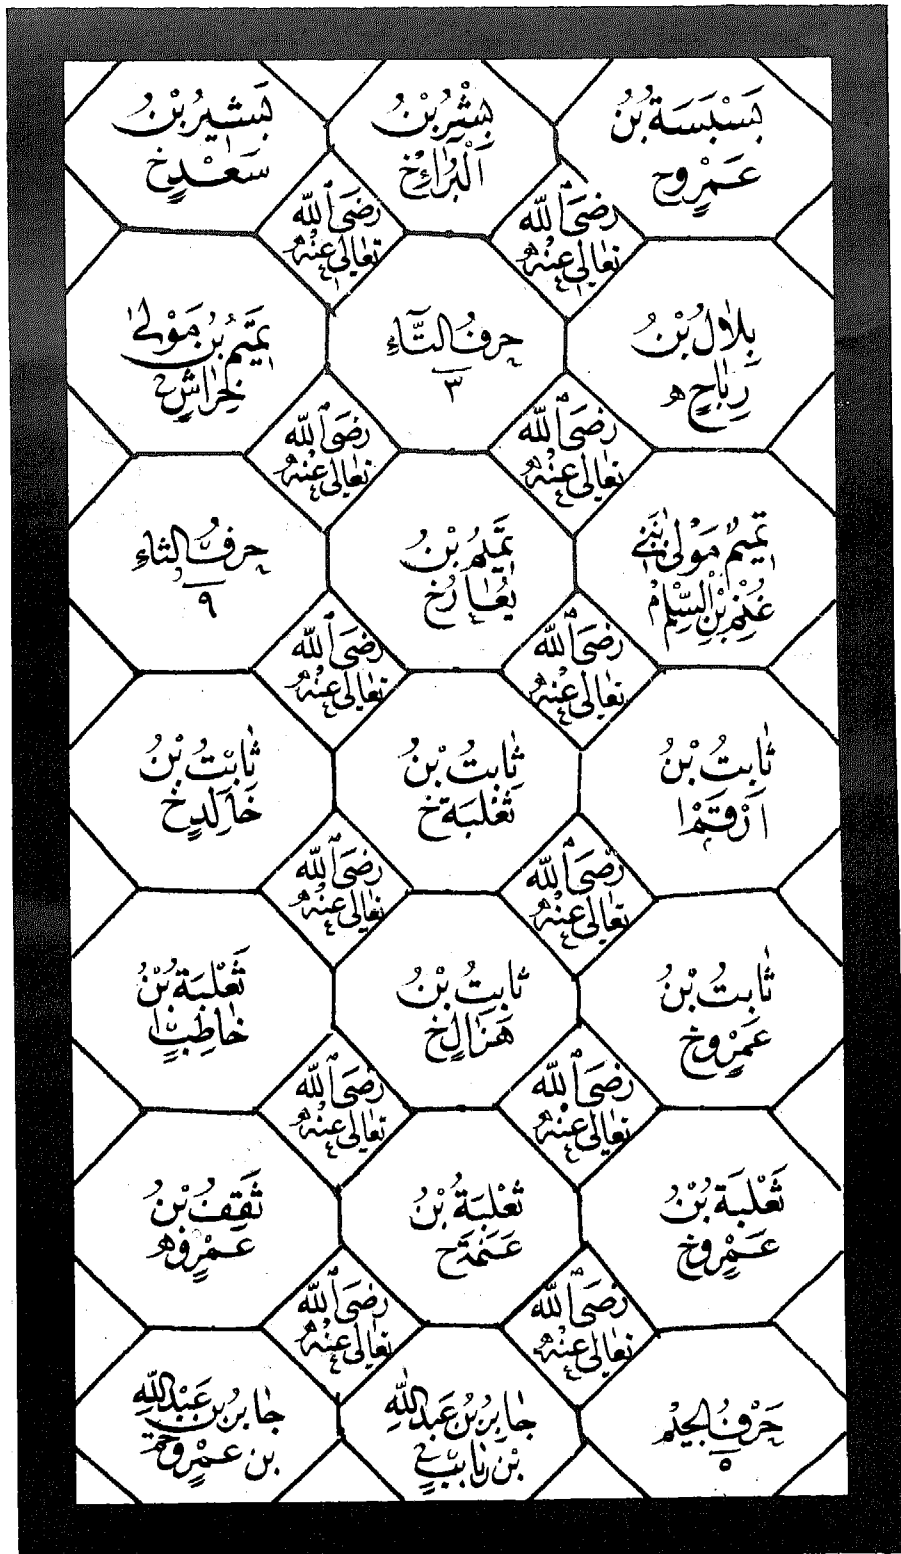 بَسْبَسَةُ بْنُ
عَمْرٍو ح
بِشْرُ بْنُ
الْبَرَاءِ خ
بَشِيرُ بْنُ
سَعْدٍ خ
رَضِيَ اللّٰه
تعالى عنه
رَضِيَ اللّٰه
تعالى عنه
بِلَالُ بْنُ
رِبَاحٍ ه
حرفُ التَّاءِ
٣
تَمِيمُ بْنُ مَوْلَى
خِرَاشٍ ح
رَضِيَ اللّٰه
تعالى عنه
رَضِيَ اللّٰه
تعالى عنه
تَمِيمُ مَوْلَى بَنِي
غُنْمِ بْنِ السِّلْمِ
تَمِيمُ بْنُ
يُعَارَ خ
حرفُ الثاءِ
٩
رَضِيَ اللّٰه
تعالى عنه
رَضِيَ اللّٰه
تعالى عنه
ثَابِتُ بْنُ
أَرْقَمَ ا
ثَابِتُ بْنُ
ثَعْلَبَةَ خ
ثَابِتُ بْنُ
خَالِدٍ خ
رَضِيَ اللّٰه
تعالى عنه
رَضِيَ اللّٰه
تعالى عنه
ثَابِتُ بْنُ
عَمْرٍو خ
ثَابِتُ بْنُ
هَزَالٍ خ
ثَعْلَبَةُ بْنُ
حَاطِبٍ ا
رَضِيَ اللّٰه
تعالى عنه
رَضِيَ اللّٰه
تعالى عنه
ثَعْلَبَةُ بْنُ
عَمْرٍو خ
ثَعْلَبَةُ بْنُ
عَنَمَةَ ح
ثَقِفُ بْنُ
عَمْرٍو ه
رَضِيَ اللّٰه
تعالى عنه
رَضِيَ اللّٰه
تعالى عنه
حَرْفُ الجِيْمِ
٥
جَابِرُ بْنُ عَبْدِاللّٰهِ
بْنِ رِيَابٍ
جَابِرُ بْنُ عَبْدِاللّٰهِ
بْنِ عَمْرٍو